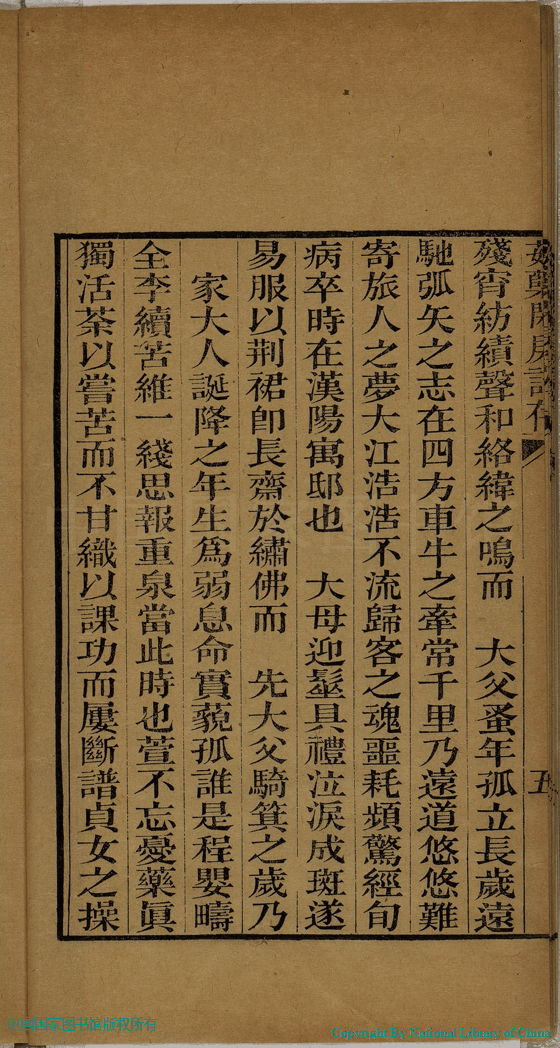 殘宵紡績聲和絡緯之鳴而　大父蚤年孤立長歲遠
馳弧矢之志在四方車牛之牽常千里乃遠道悠悠難
寄旅人之夢大江浩浩不流歸客之魂噩耗頻驚經旬
病卒時在漢陽寓邸也　大母迎髽具禮泣淚成斑遂
易服以荆裙卽長齋於繡佛而　先大父騎箕之歲乃
家大人誕降之年生爲弱息命實藐孤誰是程嬰疇
全李續苦維一綫思報重泉當此時也萱不忘憂藥眞
獨活荼以嘗苦而不甘織以課功而屢斷譜貞女之操
五
中国国家图书馆版权所有
Copyright By National Library of China